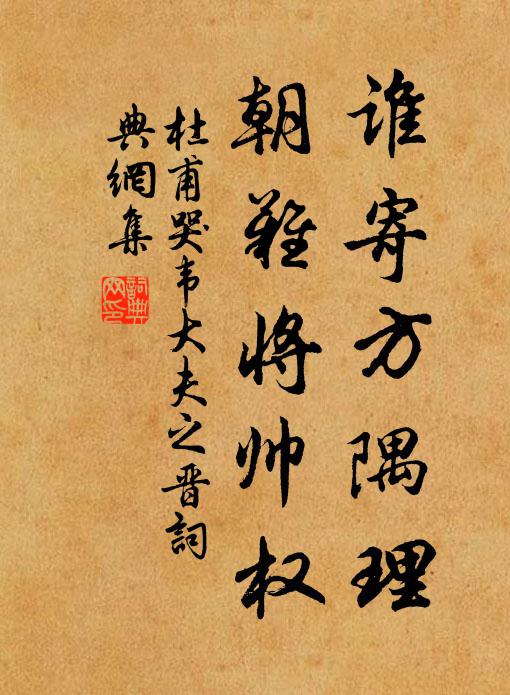 谁寄方隅理
朝难将帅权
杜甫哭韦大夫之晋詞
典網集
詞典网印